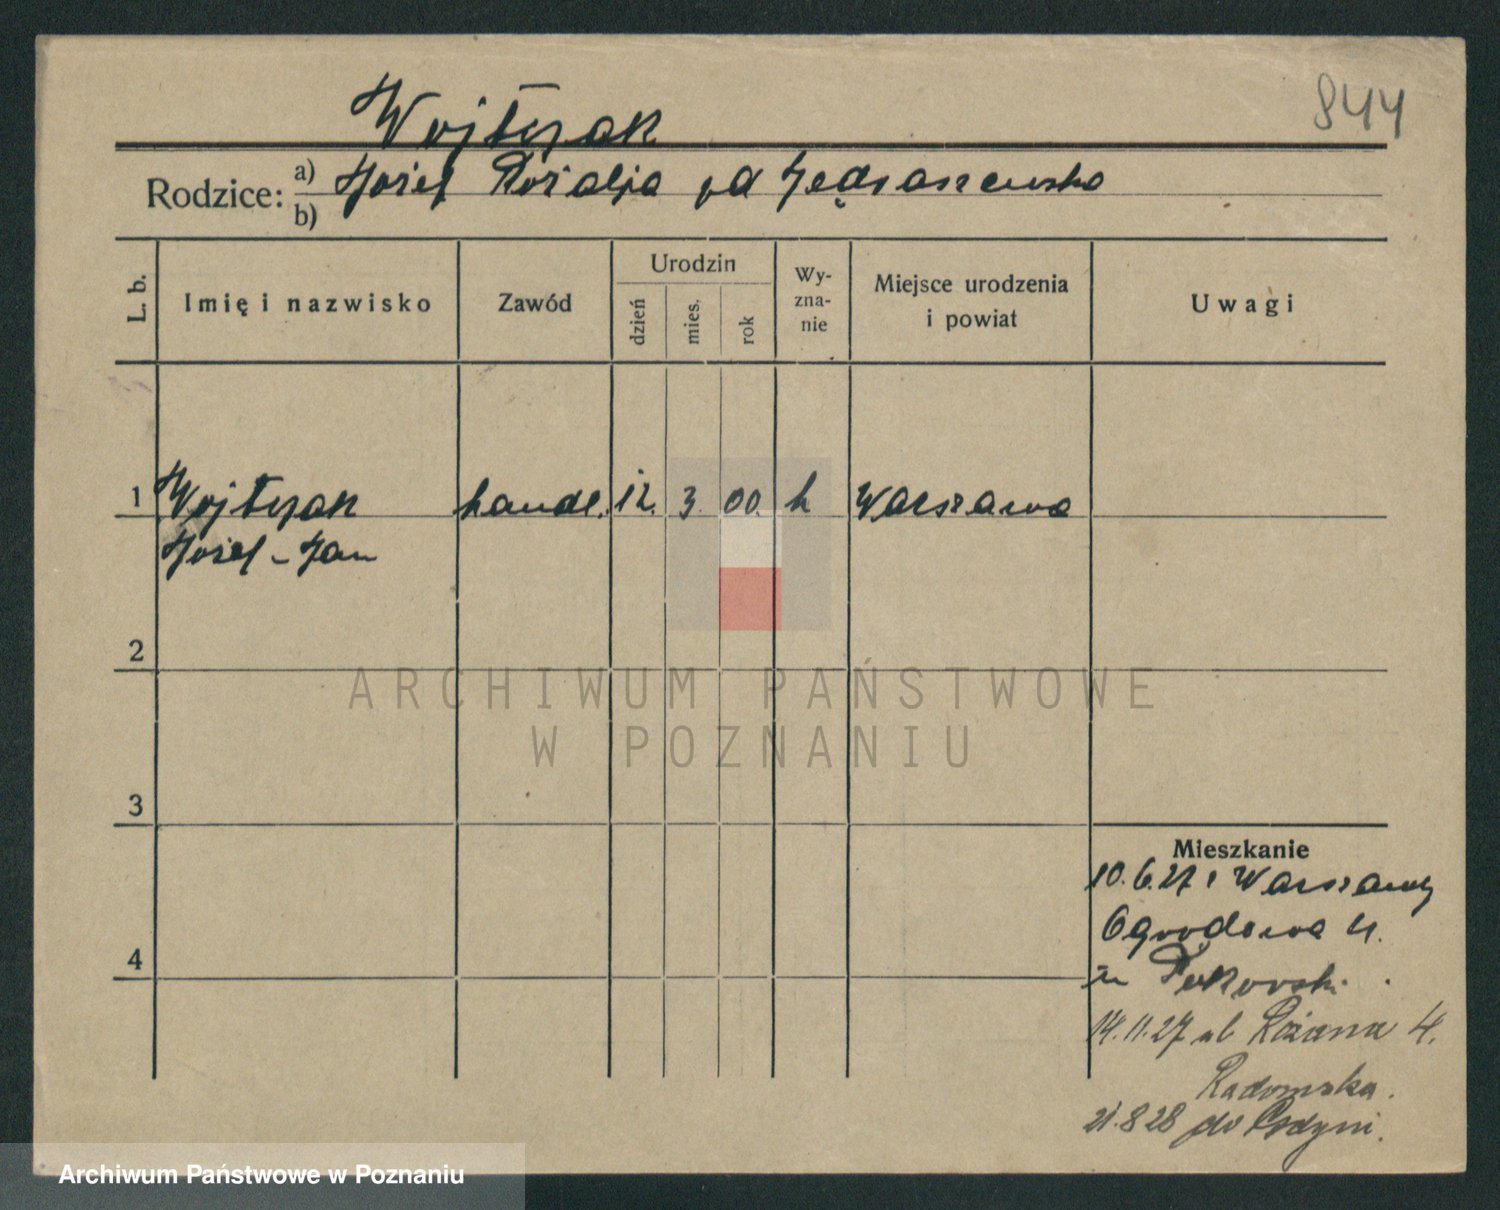 844
Wojtczak
Rodzice: a) Józef Rozalja zd Jędraszewska
b)
L. b.
Imię i nazwisko
Zawód
Urodzin
dzień
mies.
rok
Wy-
zna-
nie
Miejsce urodzenia
i powiat
Uwagi
1 Wojtczak handl. 12. 3. 00. k Warszawa
Józef-Jan
2
ARCHIWUM PAŃSTWOWE
W POZNANIU
3
4
Mieszkanie
10.6.27 z Warszawy
Ogrodowa 4.
14.11.27 ul Różana 4.
Radomska.
21.8 28 do Gdyni.
Archiwum Państwowe w Poznaniu